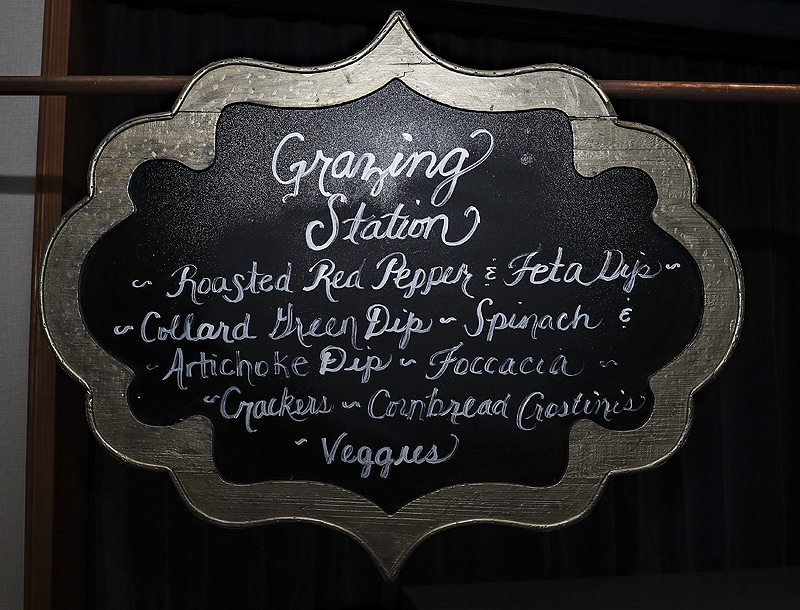 Grazing
Station
~ Roasted Red Pepper & Feta Dip ~
~ Collard Green Dip ~ Spinach &
~ Artichoke Dip ~ Foccacia ~
~ Crackers ~ Cornbread Crostinis
~ Veggies